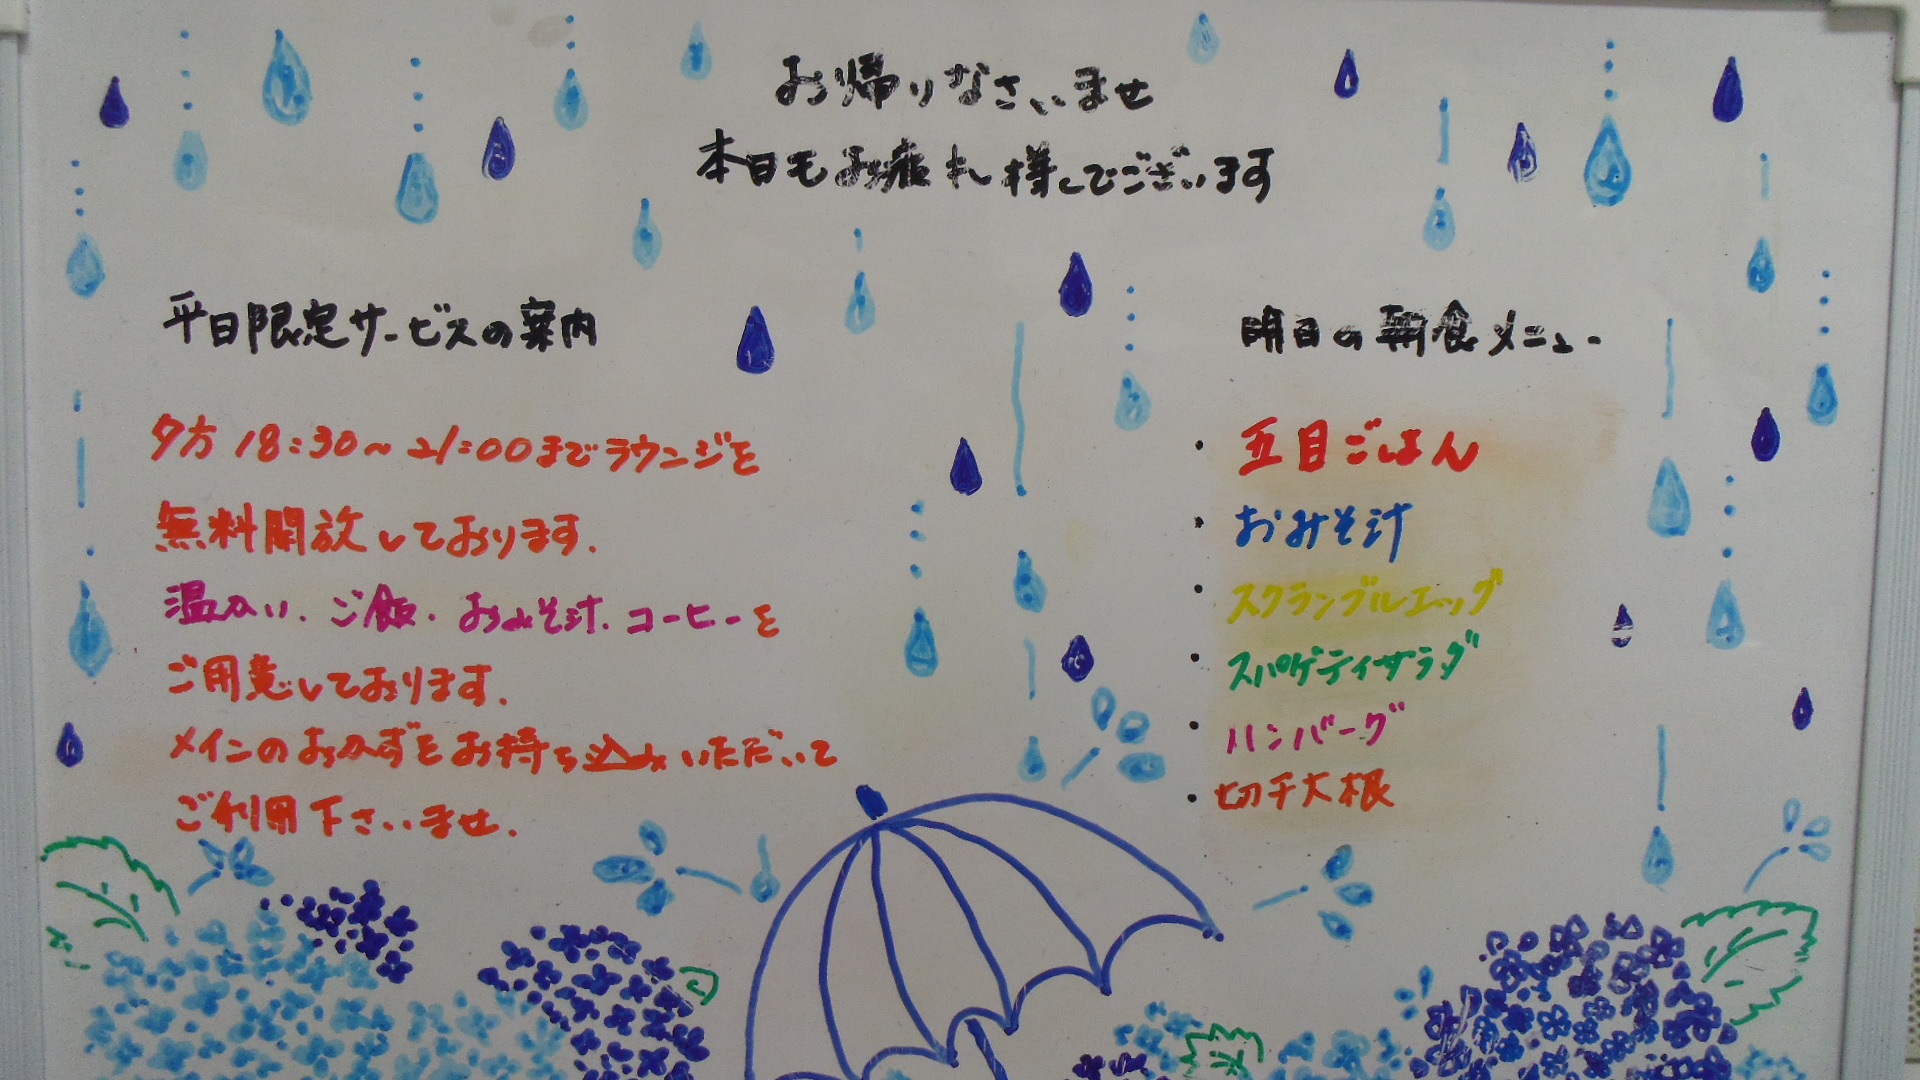 お帰りなさいませ
本日もお疲れ様でございます
平日限定サービスの案内
夕方 18:30～21:00までラウンジを
無料開放しております.
温かい.ご飯.おみそ汁.コーヒーを
ご用意しております.
メインのおかずをお持ち込みいただいて
ご利用下さいませ.
明日の朝食メニュー
・五目ごはん
・おみそ汁
・スクランブルエッグ
・スパゲティサラダ
・ハンバーグ
・切干大根